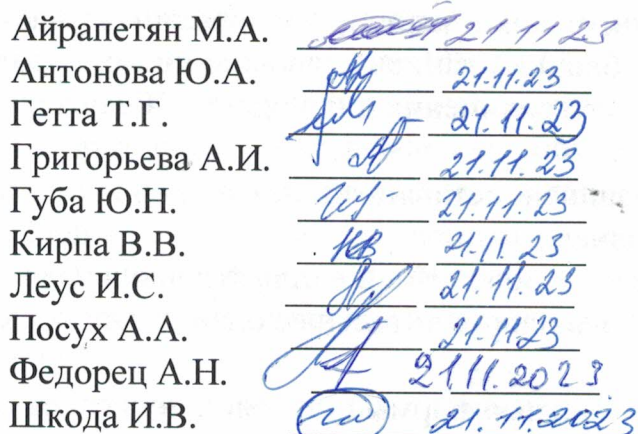 Айрапетян М.А. 21.11 23
Антонова Ю.А. 21.11.23
Гетта Т.Г. 21.11.23
Григорьева А.И. 21.11.23
Губа Ю.Н. 21.11.23
Кирпа В.В. 21.11.23
Леус И.С. 21.11.23
Посух А.А. 21.1123
Федорец А.Н. 21.11.2023
Шкода И.В. 21.11.2023